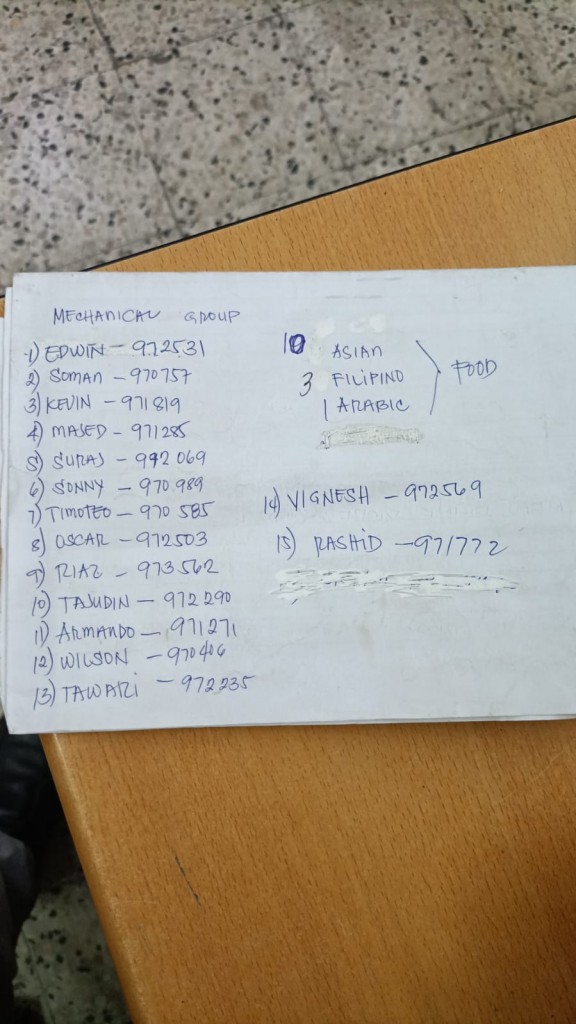 MECHANICAL GROUP
1) EDWIN - 972531
2) SOMAN - 970757
3) KEVIN - 971819
4) MAJED - 971285
5) SURAJ - 992069
6) SONNY - 970989
7) TIMOTEO - 970585
8) OSCAR - 972503
9) RIAZ - 973562
10) TAJUDIN - 972290
11) ARMANDO - 971271
12) WILSON - 970406
13) TAWARI - 972235
10 ASIAN
3 FILIPINO
1 ARABIC
FOOD
14) VIGNESH - 972569
15) RASHID - 971772